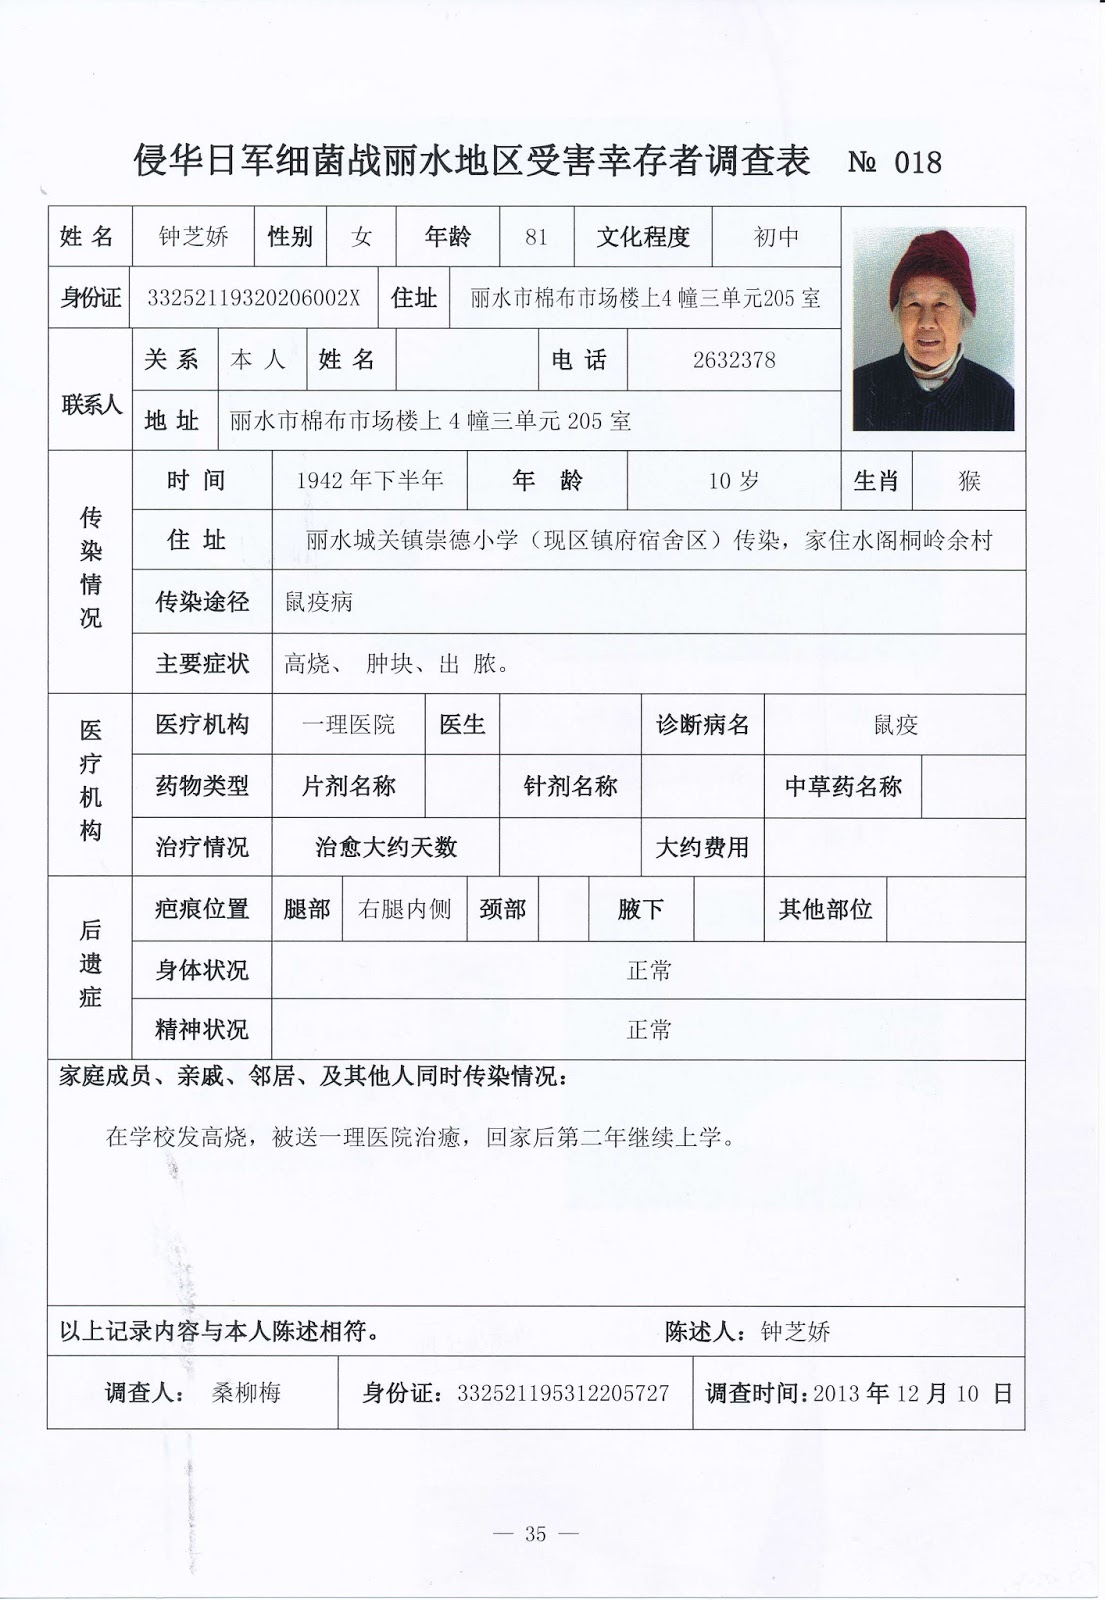 侵华日军细菌战丽水地区受害幸存者调查表 № 018
姓 名 钟芝娇 性别 女 年龄 81 文化程度 初中
身份证 33252119320206002X 住址 丽水市棉布市场楼上4幢三单元205室
联系人 关 系 本 人 姓 名 电 话 2632378
地 址 丽水市棉布市场楼上4幢三单元205室
传染情况 时 间 1942年下半年 年 龄 10岁 生肖 猴
住 址 丽水城关镇崇德小学（现区镇府宿舍区）传染，家住水阁桐岭余村
传染途径 鼠疫病
主要症状 高烧、 肿块、出 脓。
医疗机构 医疗机构 一理医院 医生 诊断病名 鼠疫
药物类型 片剂名称 针剂名称 中草药名称
治疗情况 治愈大约天数 大约费用
后遗症 疤痕位置 腿部 右腿内侧 颈部 腋下 其他部位
身体状况 正常
精神状况 正常
家庭成员、亲戚、邻居、及其他人同时传染情况：
在学校发高烧，被送一理医院治癒，回家后第二年继续上学。
以上记录内容与本人陈述相符。 陈述人：钟芝娇
调查人： 桑柳梅 身份证：332521195312205727 调查时间：2013年12月10 日
— 35 —